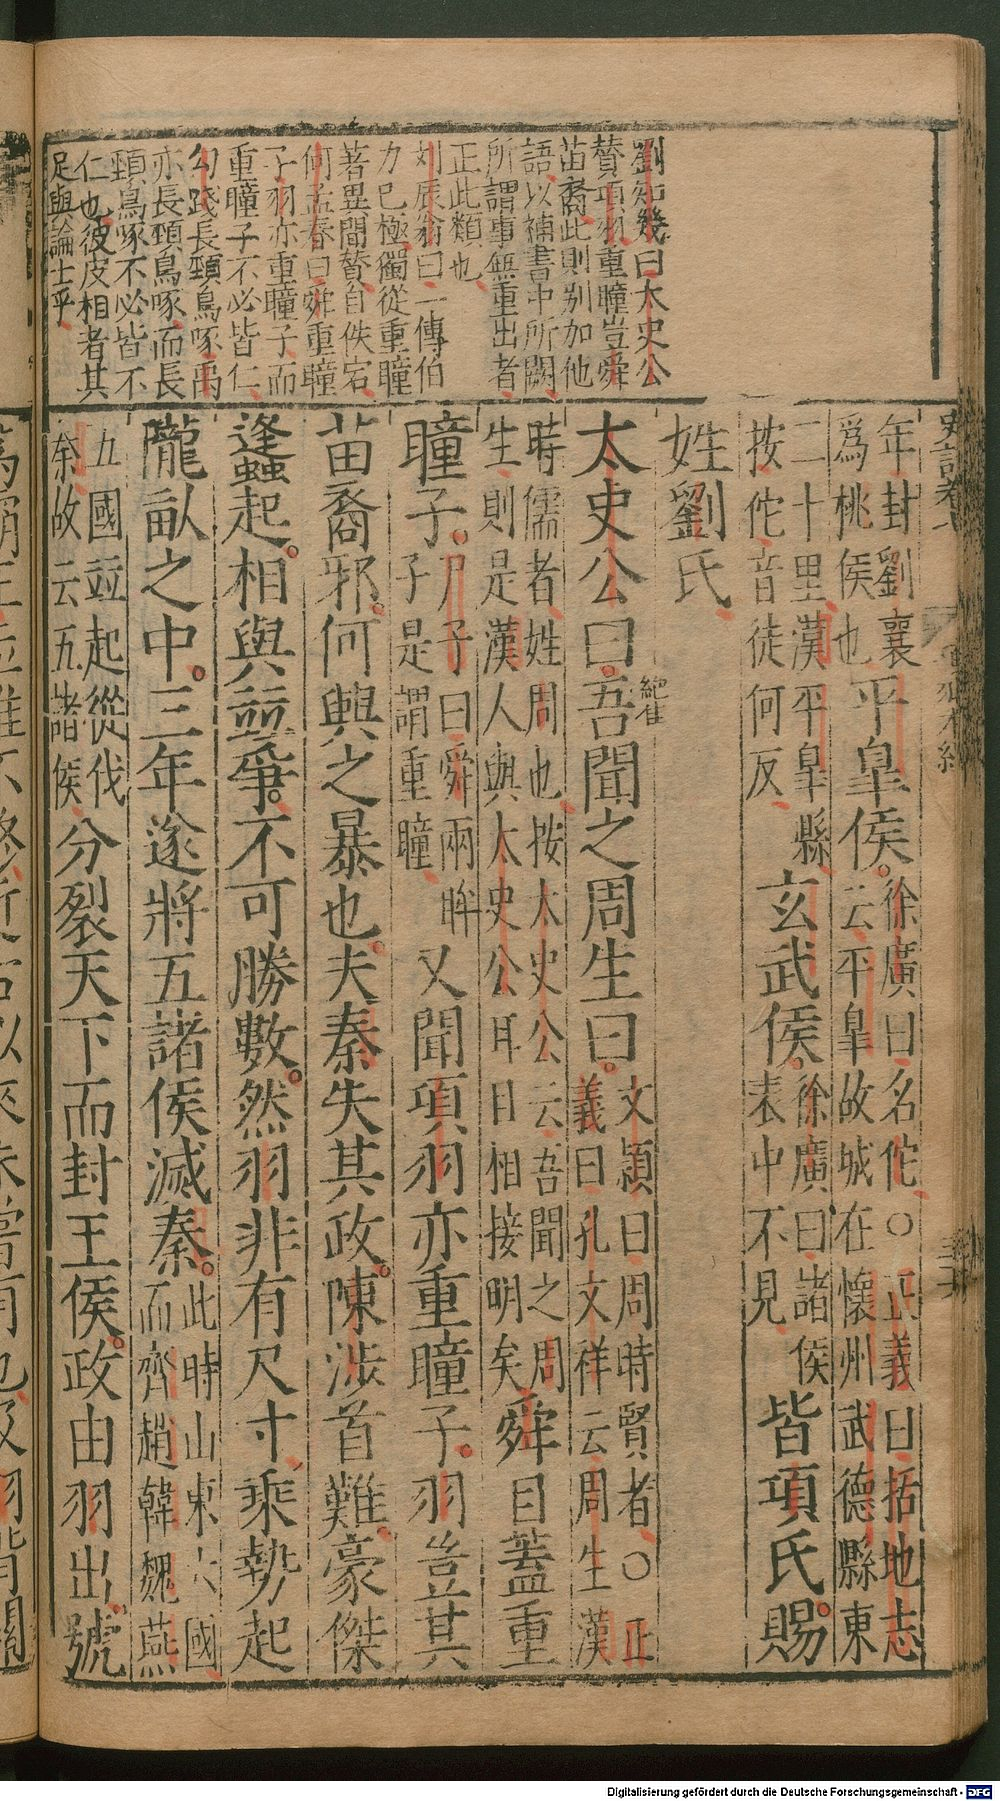 劉知幾曰太史公
賛項羽重瞳豈舜
苗裔此則别加他
語以補書中所闕
所謂事無重出者
正此類也
刘辰翁曰一傳伯
力已極獨從重瞳
著異聞賛自佚宕
何孟春曰舜重瞳
子羽亦重瞳子而
重瞳子不必皆仁
勾踐長頸鳥啄禹
亦長頸鳥啄而長
頸鳥啄不必皆不
仁也彼皮相者其
足與論士乎
史記卷七
項羽本紀
年封劉襄
爲桃侯也
平臯侯
徐廣曰名佗○正義曰括地志
云平臯故城在懷州武德縣東
二十里漢平臯縣
按佗音徒何反
玄武侯
徐廣曰諸侯
表中不見
皆項氏賜
姓劉氏
太史公曰吾聞之周生曰
文穎曰周時賢者○正
義曰孔文祥云周生漢
時儒者姓周也按太史公云吾聞之周
生則是漢人與太史公耳目相接明矣
舜目蓋重
瞳子
尸子曰舜兩眸
子是謂重瞳
又聞項羽亦重瞳子羽豈其
苗裔邪何興之暴也夫秦失其政陳涉首難豪傑
蠭起相與並爭不可勝數然羽非有尺寸乘勢起
隴畝之中三年遂將五諸侯滅秦
此時山東六國
而齊趙韓魏燕
五國並起從伐
秦故云五諸侯
分裂天下而封王侯政由羽出號
Digitalisierung gefördert durch die Deutsche Forschungsgemeinschaft - DFG